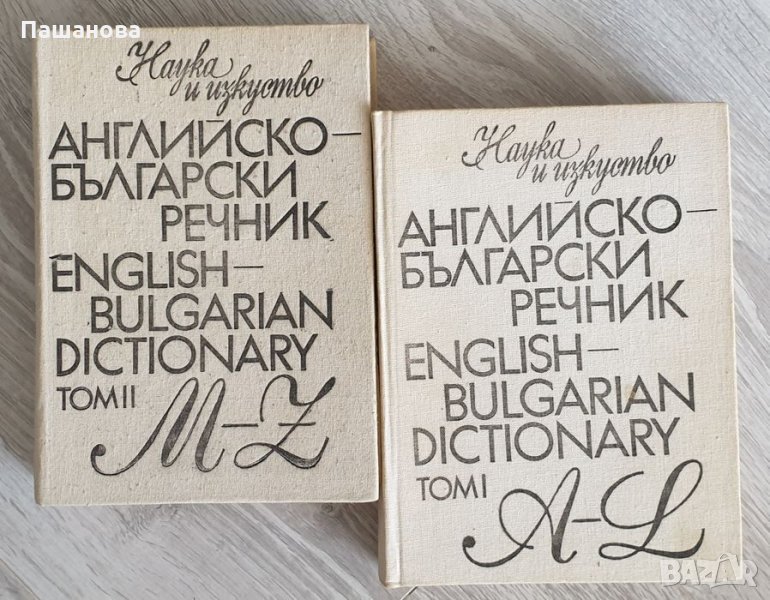 Пашанова
Наука
и изкуство
АНГЛИЙСКО–
БЪЛГАРСКИ
РЕЧНИК
ENGLISH–
BULGARIAN
DICTIONARY
ТОМ II
M–Z
Наука
и изкуство
АНГЛИЙСКО–
БЪЛГАРСКИ
РЕЧНИК
ENGLISH–
BULGARIAN
DICTIONARY
ТОМ I
A–L
BAZAR